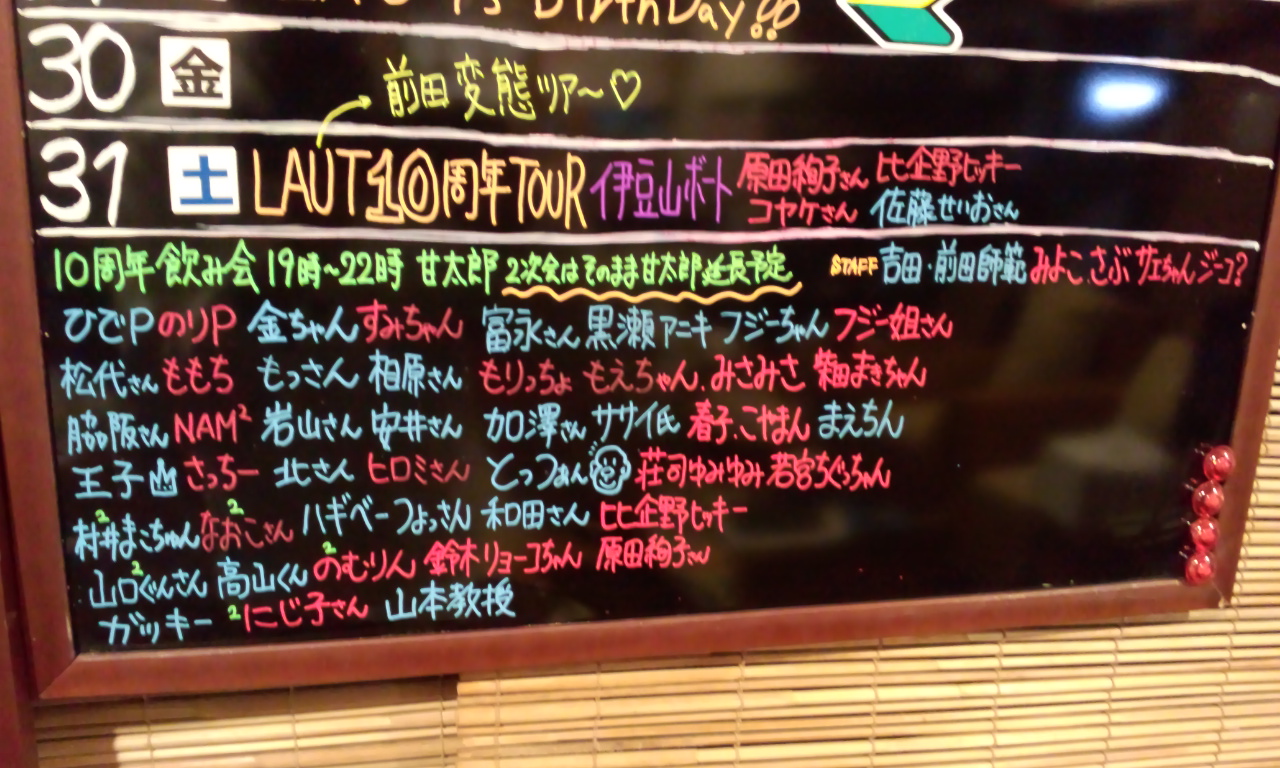 BirthDay!!
30 金
前田変態ツアー♡
31 土 LAUT10周年TOUR 伊豆山ボート 原田絢子さん 比企野ヒッキー
コヤケさん 佐藤せいおさん
10周年飲み会 19時~22時 甘太郎 2次会はそのまま甘太郎延長予定 STAFF 吉田・前田師範 みよこ さぶ サエちゃん ジーコ?
ひでP のりP 金ちゃん すみちゃん 富永さん 黒瀬アニキ フジーちゃん フジー姐さん
松代さん ももち もっさん 相原さん もりっちょ もえちゃん、みさみさ 柴田まきちゃん
脇阪さん NAM² 岩山さん 安井さん 加澤さん ササイ氏 春子、こやまん まえちん
王子 さっちー 北さん ヒロミさん とっつぁん 荘司ゆみゆみ 若宮ちぐっちゃん
村井まこちゅん 2 なおこさん 2 ハギベー つよっさん 和田さん 比企野ヒッキー
山口ぐんさん 2 高山くん のむりん 2 鈴木リョーコちゃん 原田絢子さん
ガッキー 2 にじ子さん 山本教授